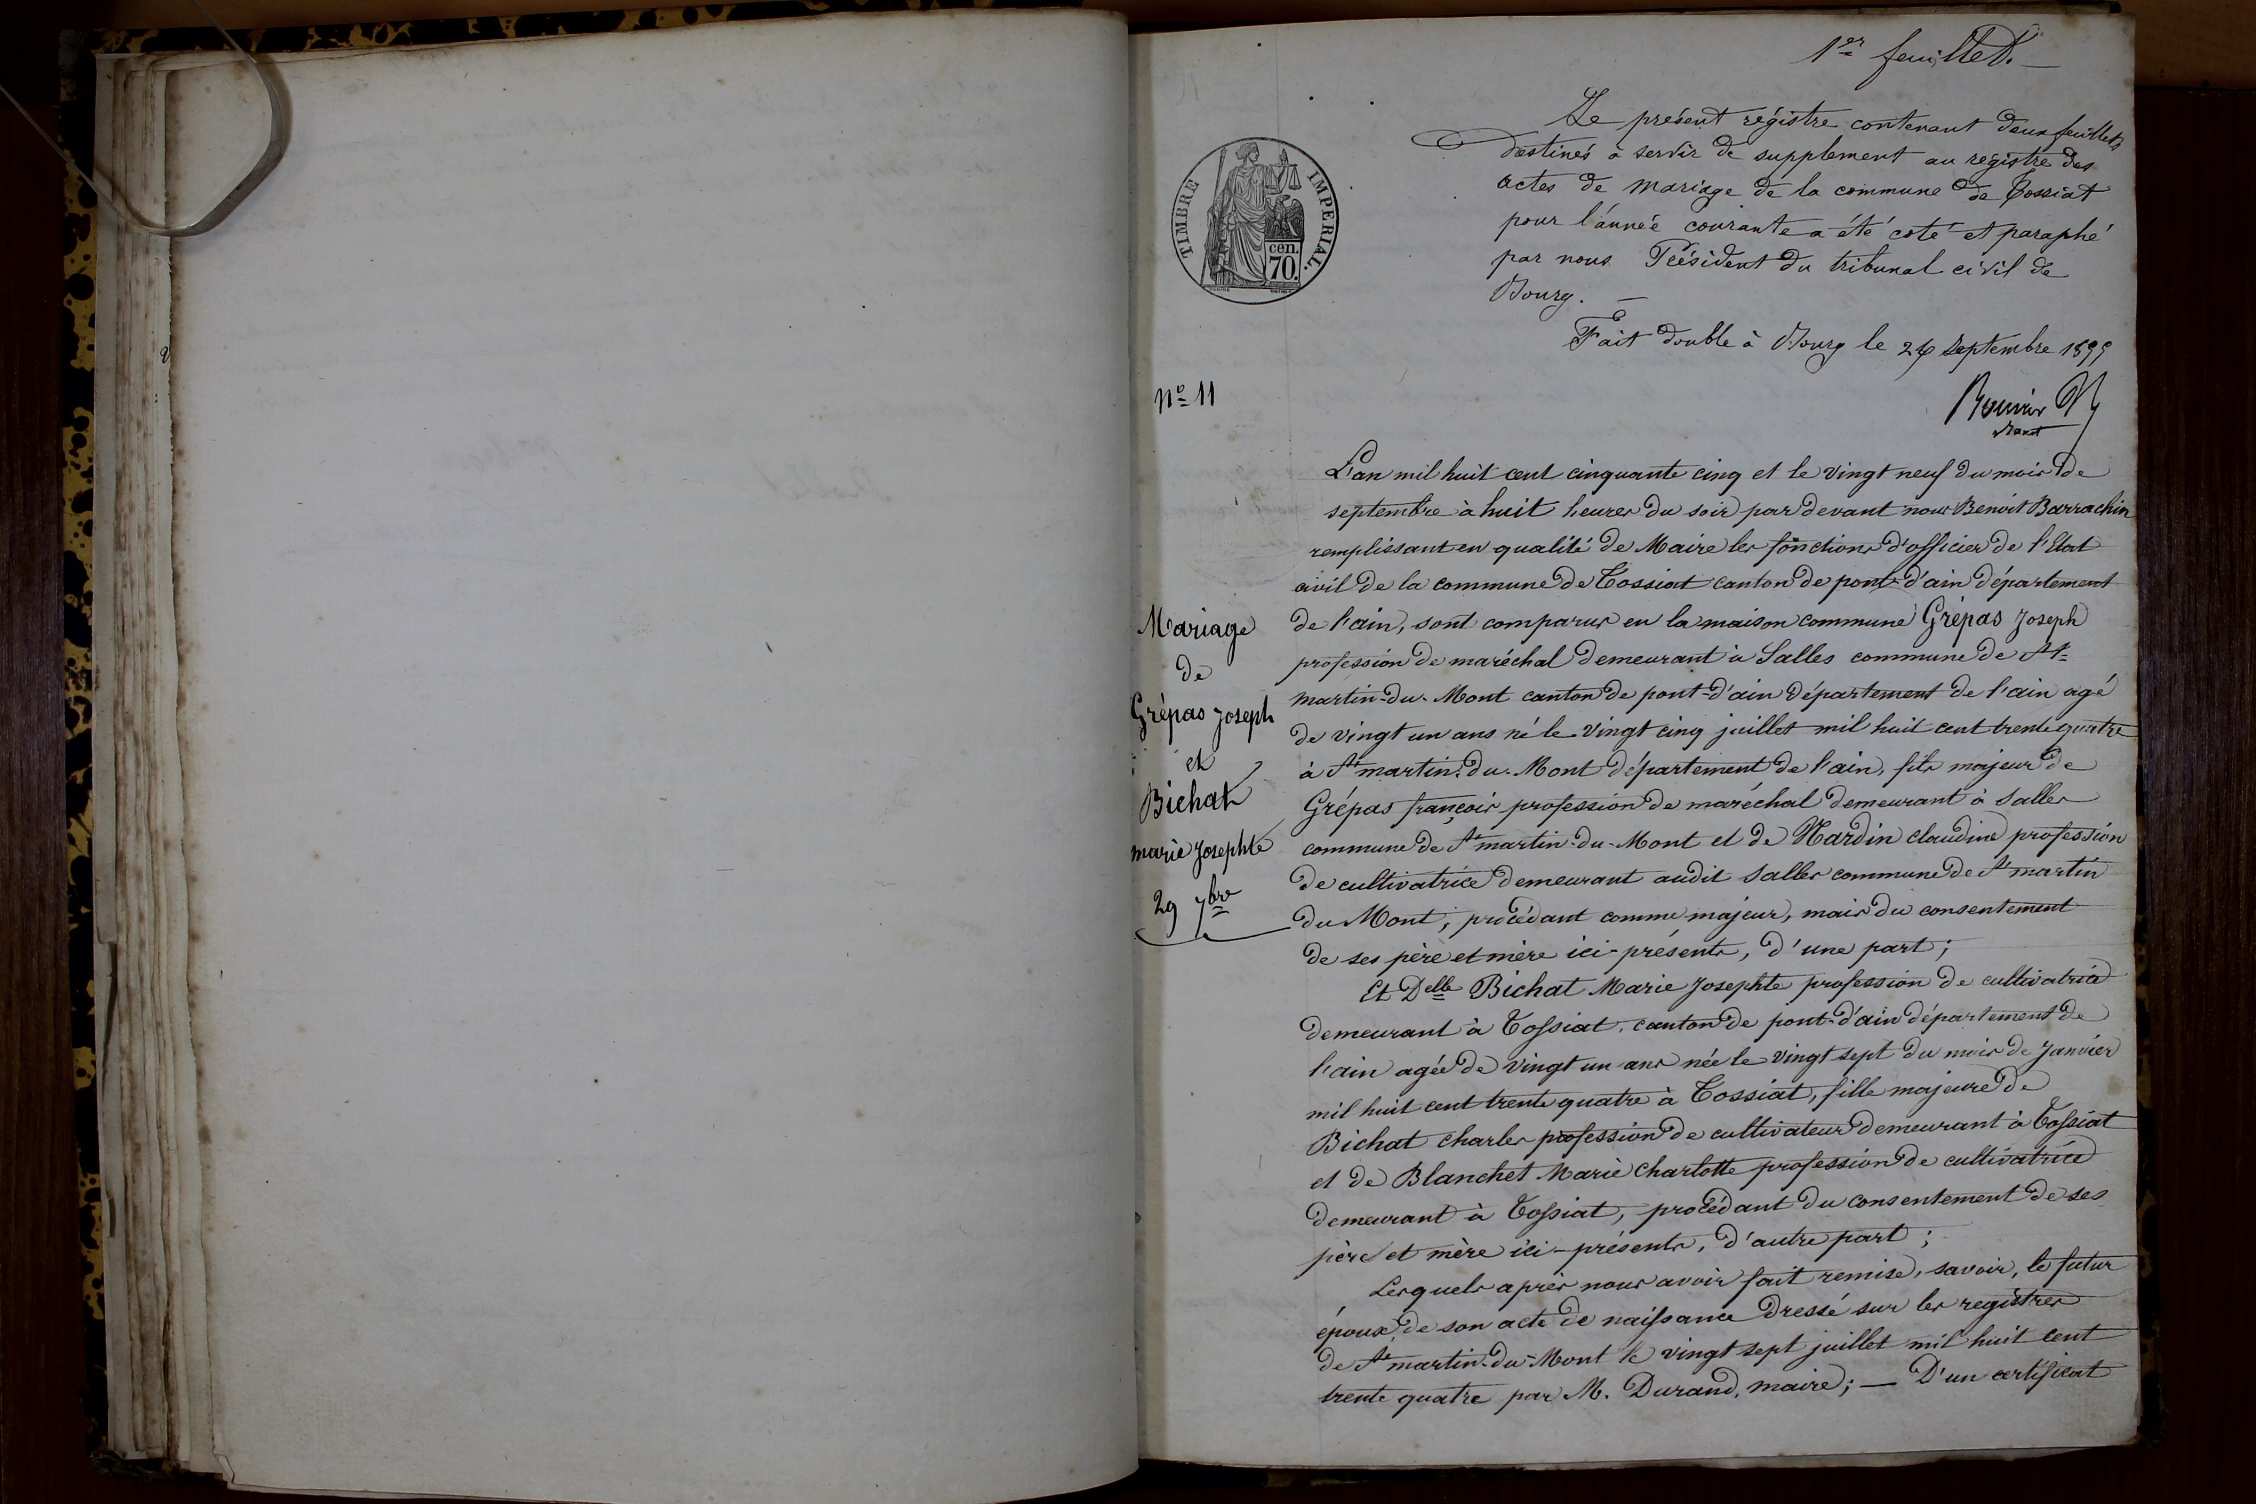 1er feuillet.
Le présent régistre contenant deux feuillets
destinés à servir de supplement au registre des
actes de mariage de la commune de Tossiat
pour l'année courante a été coté et paraphé
par nous Président du tribunal civil de
Bourg. —
Fait double à Bourg le 24 septembre 1855
TIMBRE IMPERIAL.
cen.
70.
No 11
Mariage
de
Grépas Joseph
et
Bichat
marie Josephte
29 7bre
L'an mil huit cent cinquante cinq et le vingt neuf du mois de
septembre à huit heures du soir par devant nous Benoit Barrachin
remplissant en qualité de Maire les fonctions d'officier de l'Etat
civil de la commune de Tossiat canton de pont-d'ain département
de l'ain, sont comparus en la maison commune Grépas Joseph
profession de maréchal demeurant à Salles commune de St-
martin-du-Mont canton de pont-d'ain département de l'ain agé
de vingt un ans né le vingt cinq juillet mil huit cent trente quatre
à St martin-du-Mont département de l'ain, fils majeur de
Grépas françois profession de maréchal demeurant à Salles
commune de St martin-du-Mont et de Nardin claudine profession
de cultivatrice demeurant audit Salles commune de St martin
du Mont; procédant comme majeur, mais du consentement
de ses père et mère ici-présents, d'une part;
Et Delle Bichat Marie Josephte profession de cultivatrice
demeurant à Tossiat, canton de pont-d'ain département de
l'ain agée de vingt un ans née le vingt sept du mois de Janvier
mil huit cent trente quatre à Tossiat, fille majeure de
Bichat charles profession de cultivateur demeurant à Tossiat
et de Blanchet Marie Charlotte profession de cultivatrice
demeurant à Tossiat, procédant du consentement de ses
père et mère ici-présents, d'autre part;
Lesquels après nous avoir fait remise, savoir, le futur
époux, de son acte de naissance dressé sur les registres
de St martin-du-Mont le vingt sept juillet mil huit cent
trente quatre par M. Durand, maire; — D'un certificat